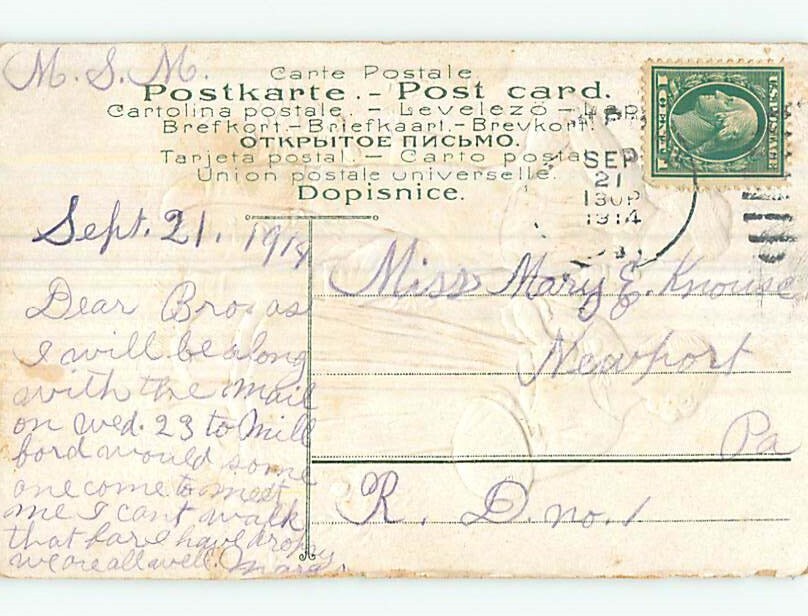 M. S. M.
Carte Postale.
Postkarte. - Post card.
Cartolina postale. - Levelezö - Lap
Brefkort. - Briefkaart. - Brevkort.
ОТКРЫТОЕ ПИСЬМО.
Tarjeta postal. - Carto postala
Union postale universelle.
Dopisnice.
U.S. POSTAGE
1 CENT 1
SEP
21
130P
1914
Sept. 21, 1914
Dear Bro. as
I will be along
with the mail
on wed. 23 to Mill
ford would some
one come to meet
me I cant walk
that far I have dropsy
we are all well.
Miss Mary E. Knouse
Newport
Pa
R. D. no. 1